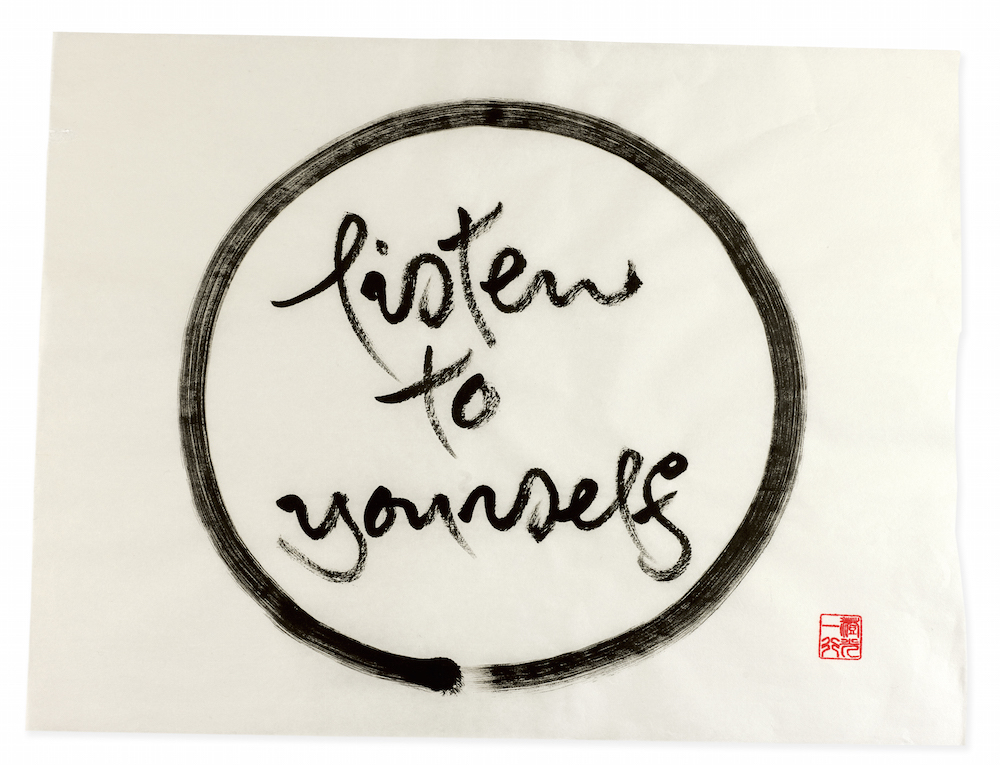 listen
to
yourself
澄光
一行